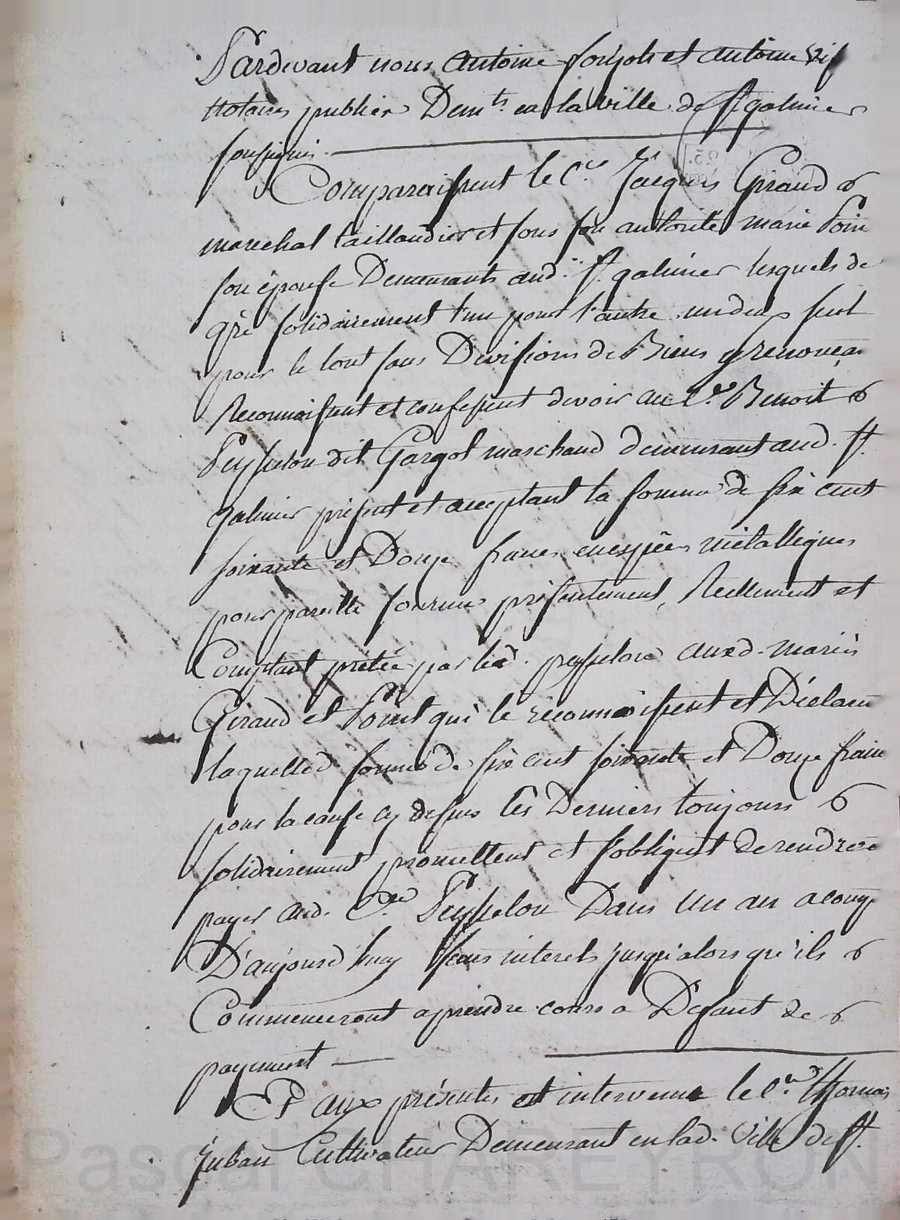 Pardevant nous antoine et antoine
Notaires publics Demts en la ville de St galmier
soussignés.
Comparaissent le Cen Jacques Giraud
marechal taillandier et sous son autorité marie Poin
son épouse Demeurants aud. St galmier lesquels de
gré solidairement l'un pour l'autre un deux seul
pour le tout sans Divisions de Biens y renonçan
Reconnoissent et confessent devoir au Cen Benoit
Peysselon dit Gargot marchand demeurant aud. St
galmier présent et acceptant la somme de six cent
soixante et Douze francs en espèces métalliques
pour pareille somme présentement, Réellement et
Comptant prêtée par led. peysselon auxd. mariés
Giraud et Point qui le reconnoissent et Déclare
laquelle d. somme de six cent soixante et Douze franc
pour la cause cy dessus les Derniers toujours
solidairement promettent et s'obligent de rendre et
payer aud. Cen Peysselon Dans un an a comp
D'aujourd'huy sans interets jusqu'alors qu'ils
Commenceront a prendre cours a Défaut de
payement
Et aux présentes est intervenu le Cen Thomas
Juban Cultivateur Demeurant en lad. Ville de St.
Pascal CHAREYRON